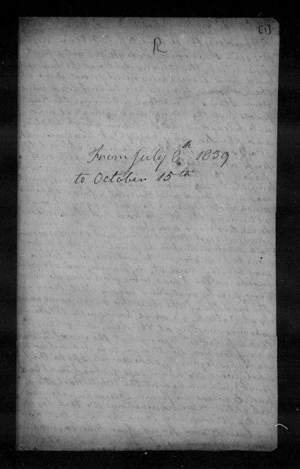 [1]
R
From July 6th 1839
to October 15th